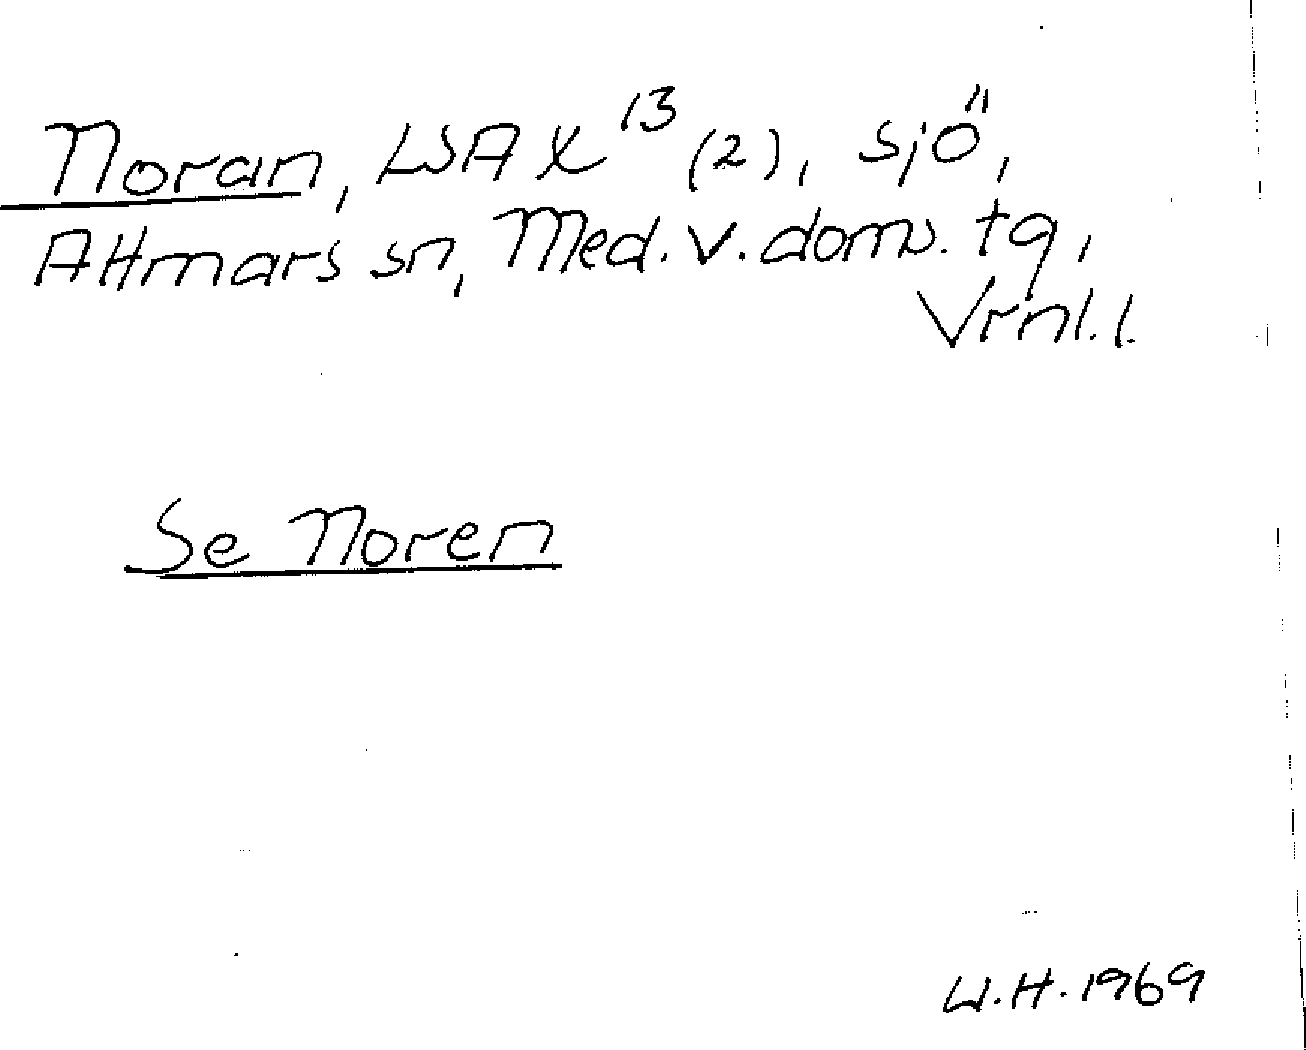 Noran, LSA X¹³ (2), sjö,
Attmars sn, Med. v. doms. tg,
Vrnl. l.
Se Noren
W.H. 1969